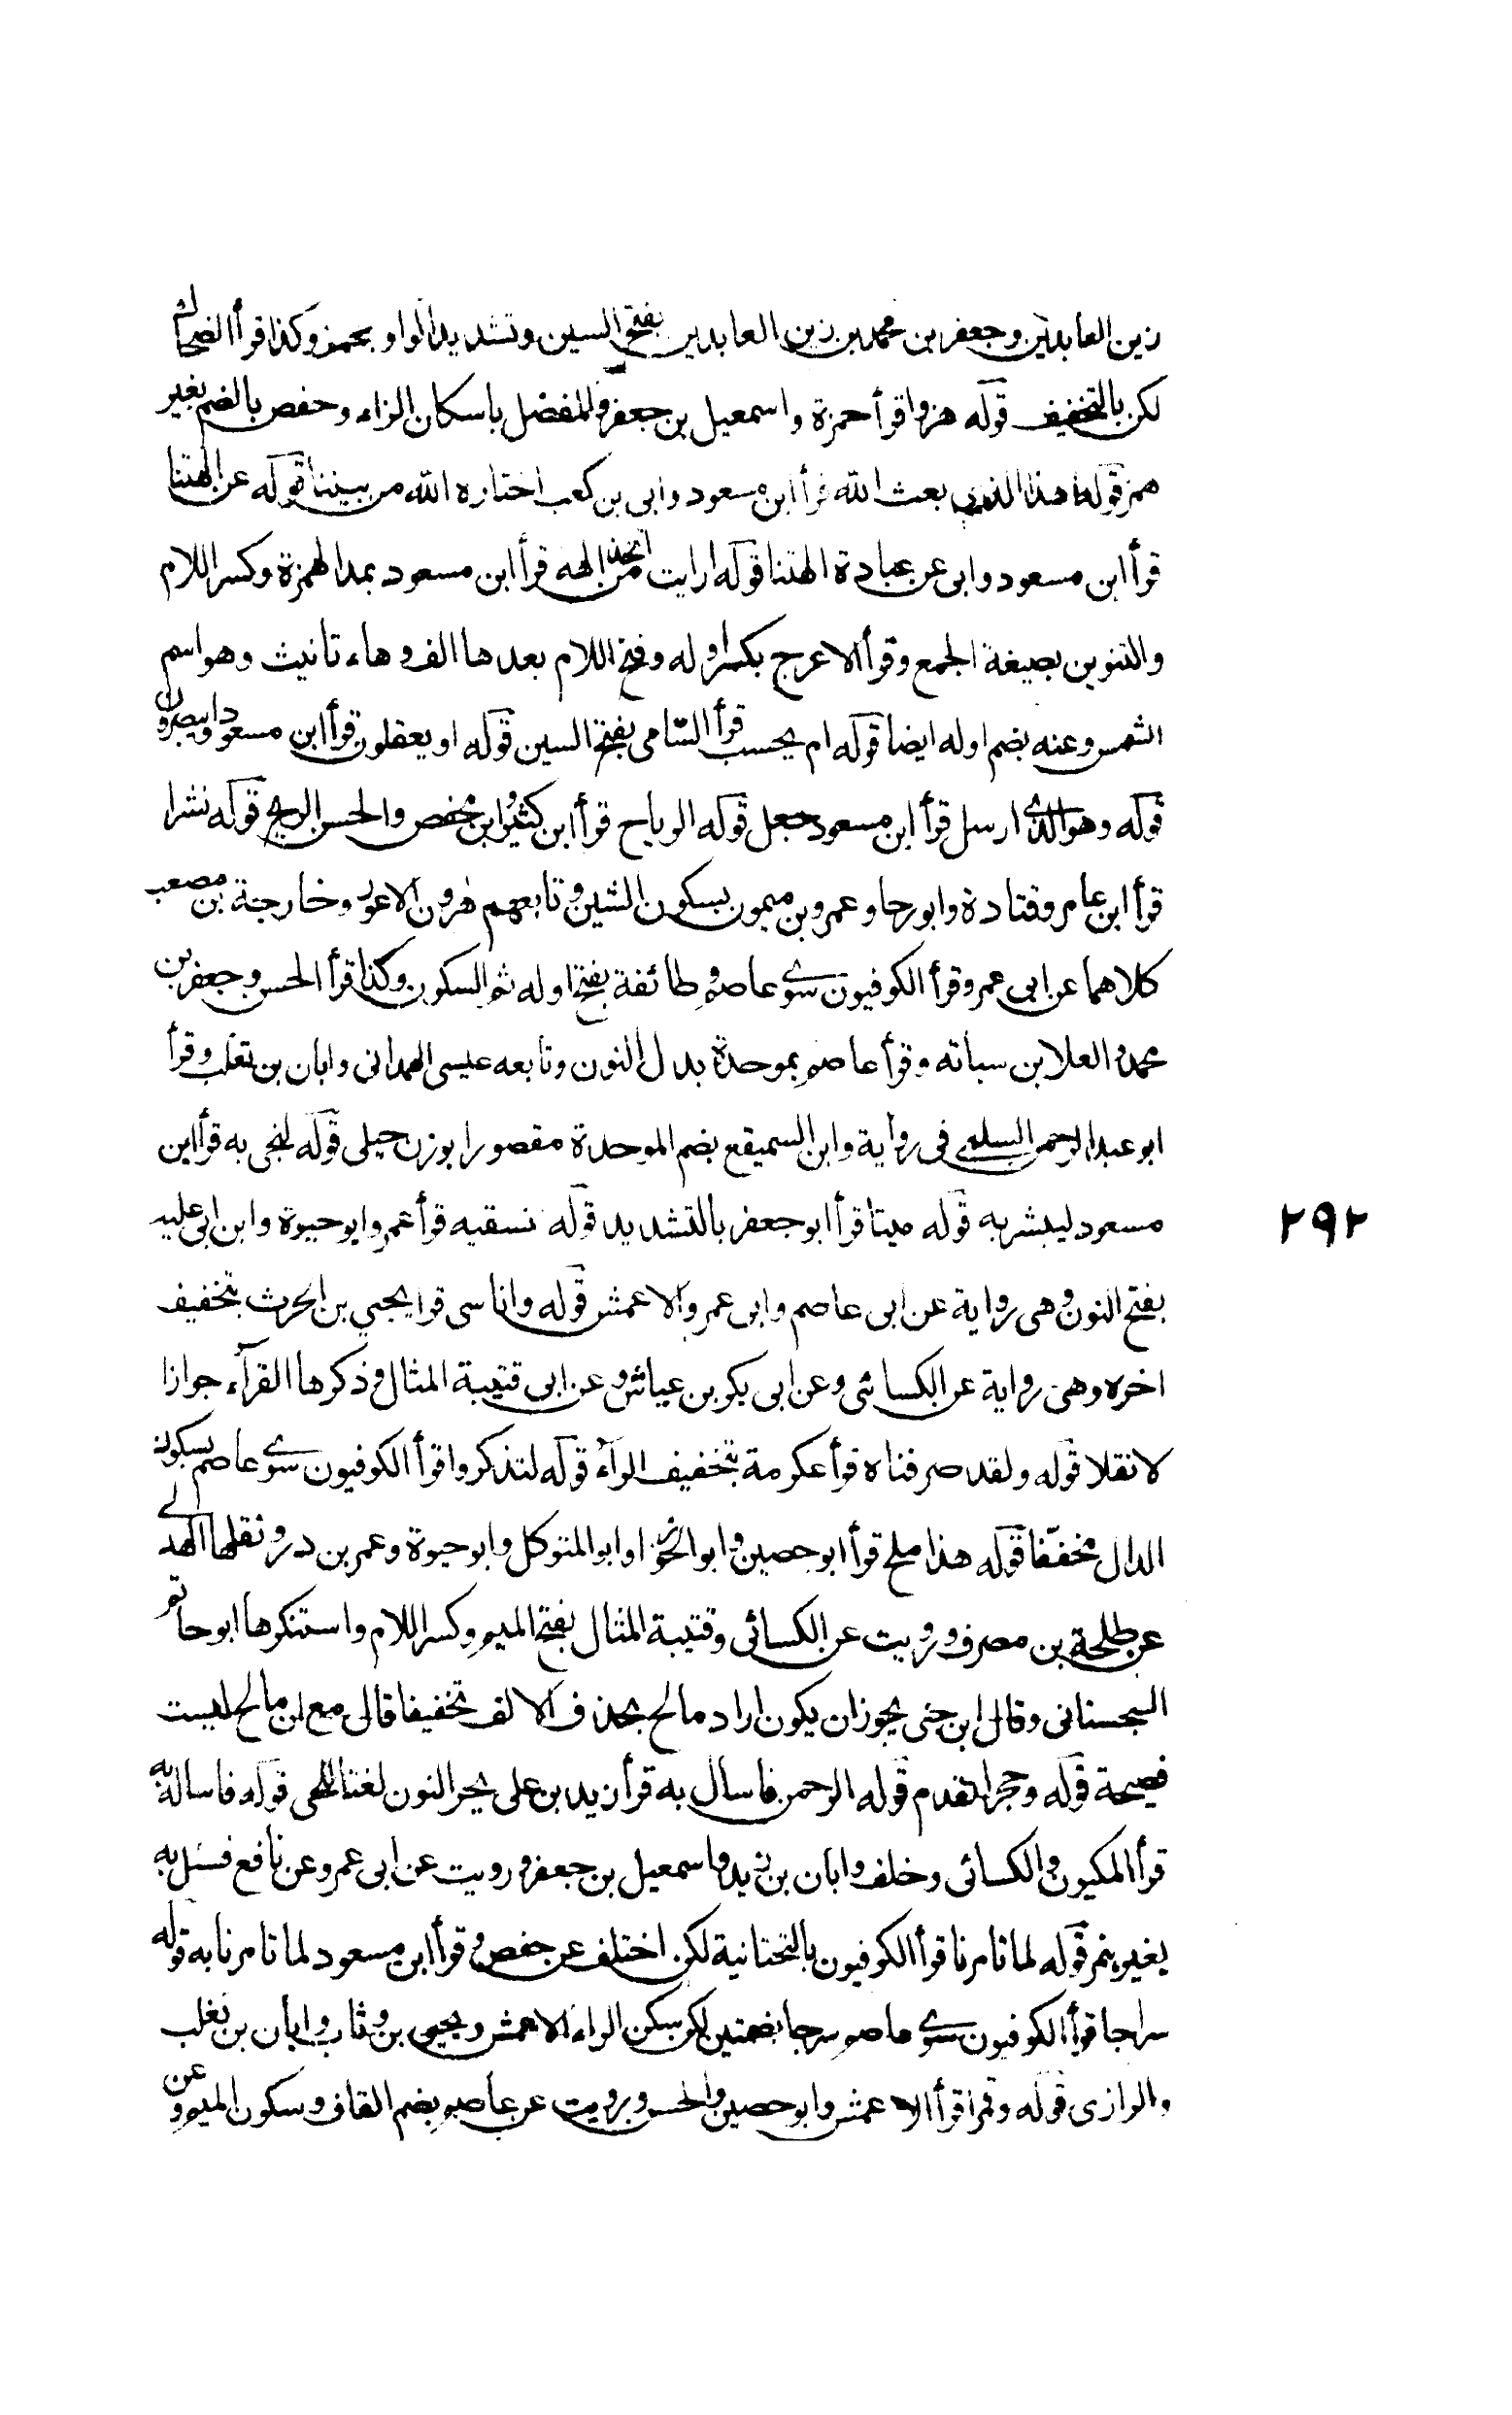 زين العابدين وجعفر بن محمد بن زين العابدين بفتح السين وتشديد الواو بحمز وكذا قرأ الضحاك
لكن بالتخفيف قوله هزوا قرأ حمزة واسمعيل بن جعفر والمفضل باسكان الزاء وحفص بالضم بغير
همز قوله اهذا الذي بعث الله قرأ ابن مسعود وابى بن كعب اختاره الله من بيننا قوله عن الهتنا
قرأ ابن مسعود وابى عن عبادة الهتنا قوله ارايت من اتخذ الهه قرأ ابن مسعود بمد الهمزة وكسر اللام
والتنوين بصيغة الجمع وقرأ الاعرج بكسر اوله وفتح اللام بعدها الف وهاء تانيث وهو اسم
الشمس وعنه بضم اوله ايضا قوله ام يحسب قرأ الشامى بفتح السين قوله او يعقلون قرأ ابن مسعود او يبصرون
قوله وهو الذى ارسل قرأ ابن مسعود جعل قوله الرياح قرأ ابن كثير وابن محيصن والحسن الريح قوله نشرا
قرأ ابن عامر وقتادة وابو رجا وعمرو بن ميمون بسكون الشين وتابعهم هرون الاعور وخارجة بن مصعب
كلاهما عن ابى عمرو قرأ الكوفيون سوى عاصم وطائفة بفتح اوله ثم السكون وكذا قرأ الحسن وجعفر بن
محمد والعلا بن سبابه وقرأ عاصم بموحدة بدل النون وتابعه عيسى الهمدانى وابان بن تغلب وقرأ
ابو عبد الرحمن السلمى فى رواية وابن السميقع بضم الموحدة مقصورا بوزن حبلى قوله لنحيى به قرأ ابن
مسعود لينشر به قوله ميتا قرأ ابو جعفر بالتشديد قوله نسقيه قرأ عمر وابو حيوة وابن ابى عليه
٢٩٢
بفتح النون وهى رواية عن ابى عاصم وابى عمرو والاعمش قوله واناسى قرا يحيى بن الحرث بتخفيف
اخره وهى رواية عن الكسائى وعن ابى بكر بن عياش وعن ابى قتيبة المثال وذكرها الفرآء جوازا
لا نقلا قوله ولقد صرفناه قرأ عكرمة بتخفيف الرآء قوله لتذكروا قرأ الكوفيون سوى عاصم بسكون
الدال مخففا قوله هذا ملح قرأ ابو حصين وابو الجوزاء وابو المتوكل وابو حيوة وعمر بن ذر ونقلها الهذلى
عن طلحة بن مصرف ورويت عن الكسائى وقتيبة المثال بفتح الميم وكسر اللام واستنكرها ابو حاتم
السجستانى وقال ابن جنى يجوز ان يكون اراد مالح بحذف الالف تخفيفا قال مع ان مالح ليست
فصيحة قوله وحجرا تقدم قوله الرحمن فاسال به قرأ زيد بن على بجر النون نعتا للحى قوله فاسال به
قرأ المكيون والكسائى وخلف وابان بن يزيد واسمعيل بن جعفر ورويت عن ابى عمرو وعن نافع فسئل به
بغير همز قوله لما تامرنا قرأ الكوفيون بالتحتانية لكن اختلف عن حفص وقرأ ابن مسعود لما تامرنا به قوله
سراجا قرأ الكوفيون سوى عاصم سرجا بضمتين لكن سكن الراء الاعمش ويحيى بن وثاب وابان بن تغلب
والرازى قوله وقمرا قرأ الاعمش وابو حصين والحسن ورويت عن عاصم بضم القاف وسكون الميم وعن